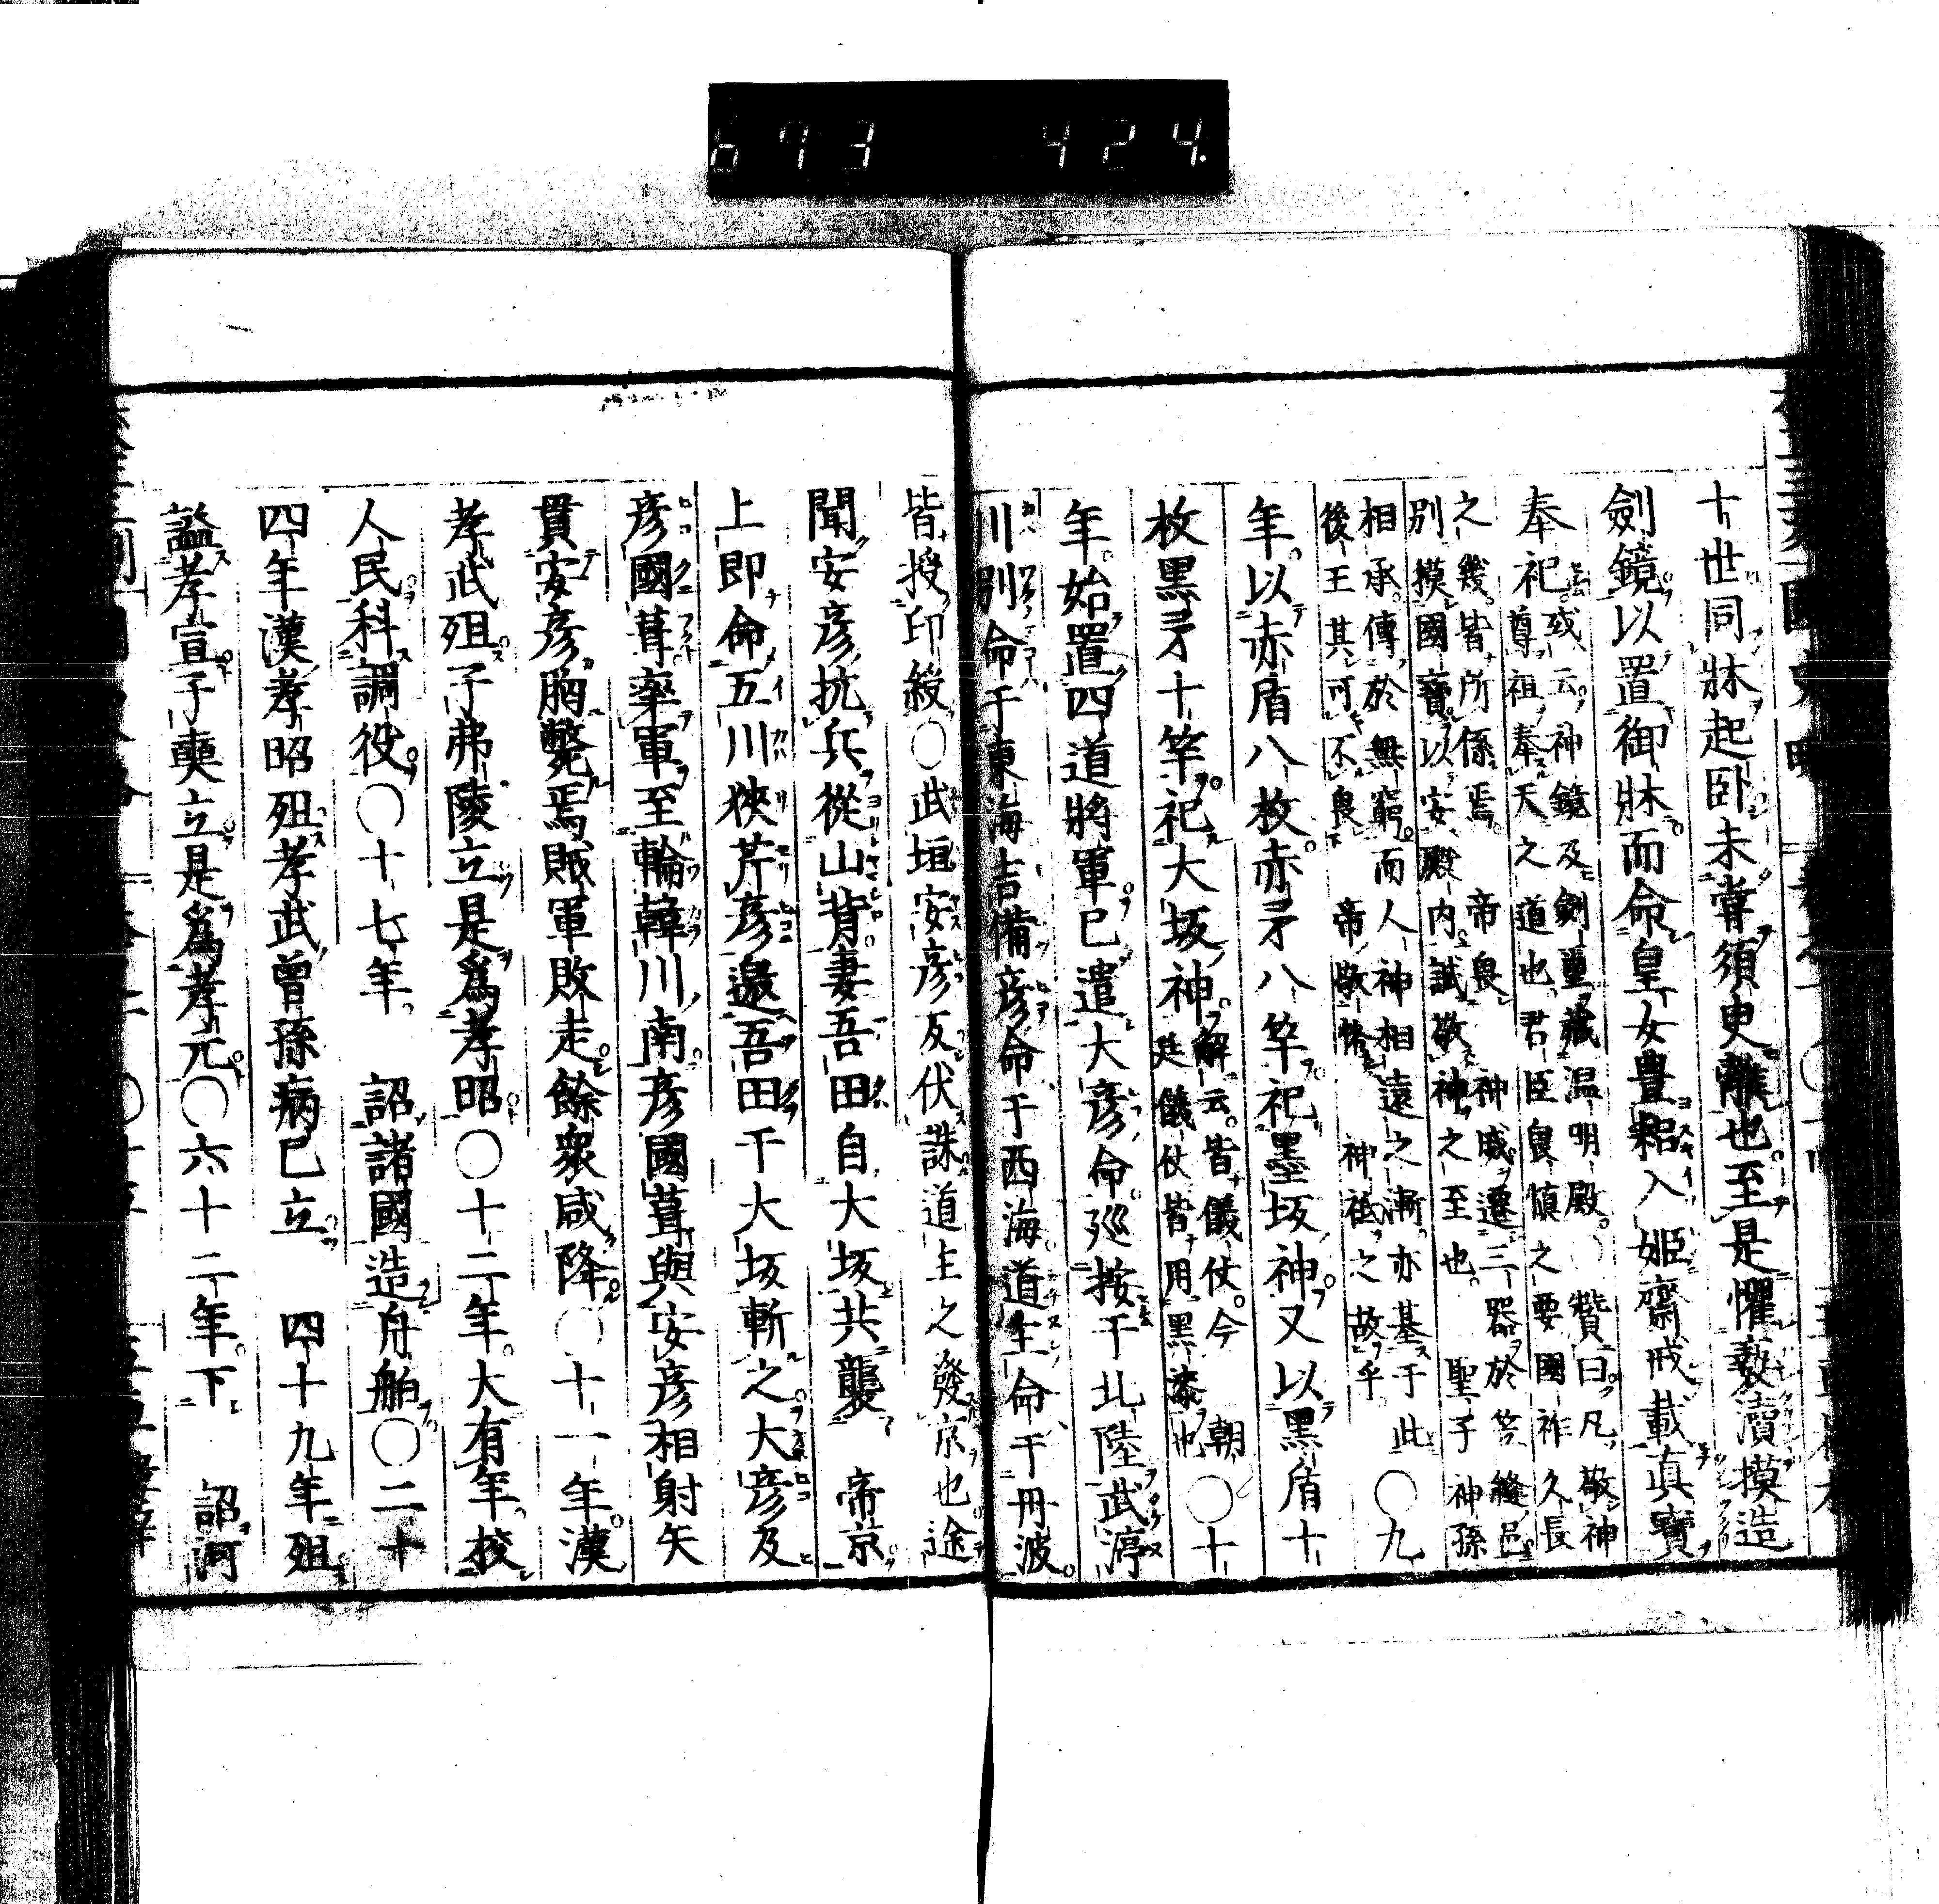 673 424
十世同牀起臥未嘗須臾離也至是懼褻瀆摸造
劍鏡以置御牀而命皇女豊耜入姬齋戒載真寶
奉祀或云神鏡及劍璽藏温明殿○贊曰凡敬神
尊祖奉天之道也君臣良慎之要國祚久長
之幾皆所係焉 帝良 神威遷三器於笠縫邑
別摸國寶以安殿内誠敬神之至也 聖子神孫
相承傳於無窮而人神相遠之漸亦基于此
後王其可不良 帝敬恪 神祗之故乎 ○九
年以赤盾八枚赤矛八竿祀墨坂神又以黑盾十
枚黑矛十竿祀大坂神解云皆儀仗今 朝
廷儀仗皆用黑漆也 ○十
年始置四道將軍已遣大彦命巡按于北陸武渟
川別命于東海吉備彦命于西海道主命于丹波
皆授印綬○武埴安彦反伏誅道主之發京也途
聞安彦抗兵從山背妻吾田自大坂共襲 帝京
上即命五川狹芹彦邀吾田于大坂斬之大彦及
彦國葺率軍至輪韓川南彦國葺與安彦相射矢
貫安彦胸斃焉賊軍敗走餘衆咸降○十一年漢
孝武殂子弗陵立是爲孝昭○十二年大有年校
人民科調役○十七年 詔諸國造舟舶○二十
四年漢孝昭殂孝武曾孫病已立 四十九年殂
謚孝宣子奭立是爲孝元○六十二年下 詔河